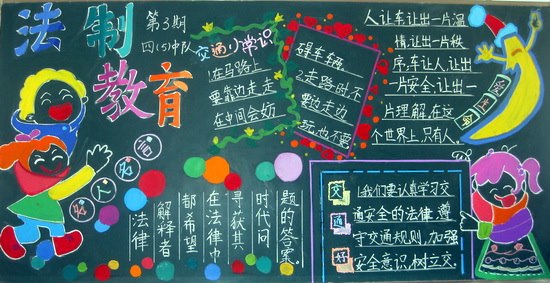 法制
教育
第3期
四(5)中队
交通小常识
1.在马路上
要靠边走走
在中间会妨
碍车辆。
2.走路时不
要边走边
玩,也不要
人让车,让出一片温
情,让出一片秩
序,车让人,让出
一片安全,让出一
片理解,在这
个世界上,只有人.
名人名言
法律
解释者
都希望
在法律中
寻获其
时代问
题的答案。
交
通
好
1.我们要认真学习交
通安全的法律,遵
守交通规则,加强
安全意识,树立交.